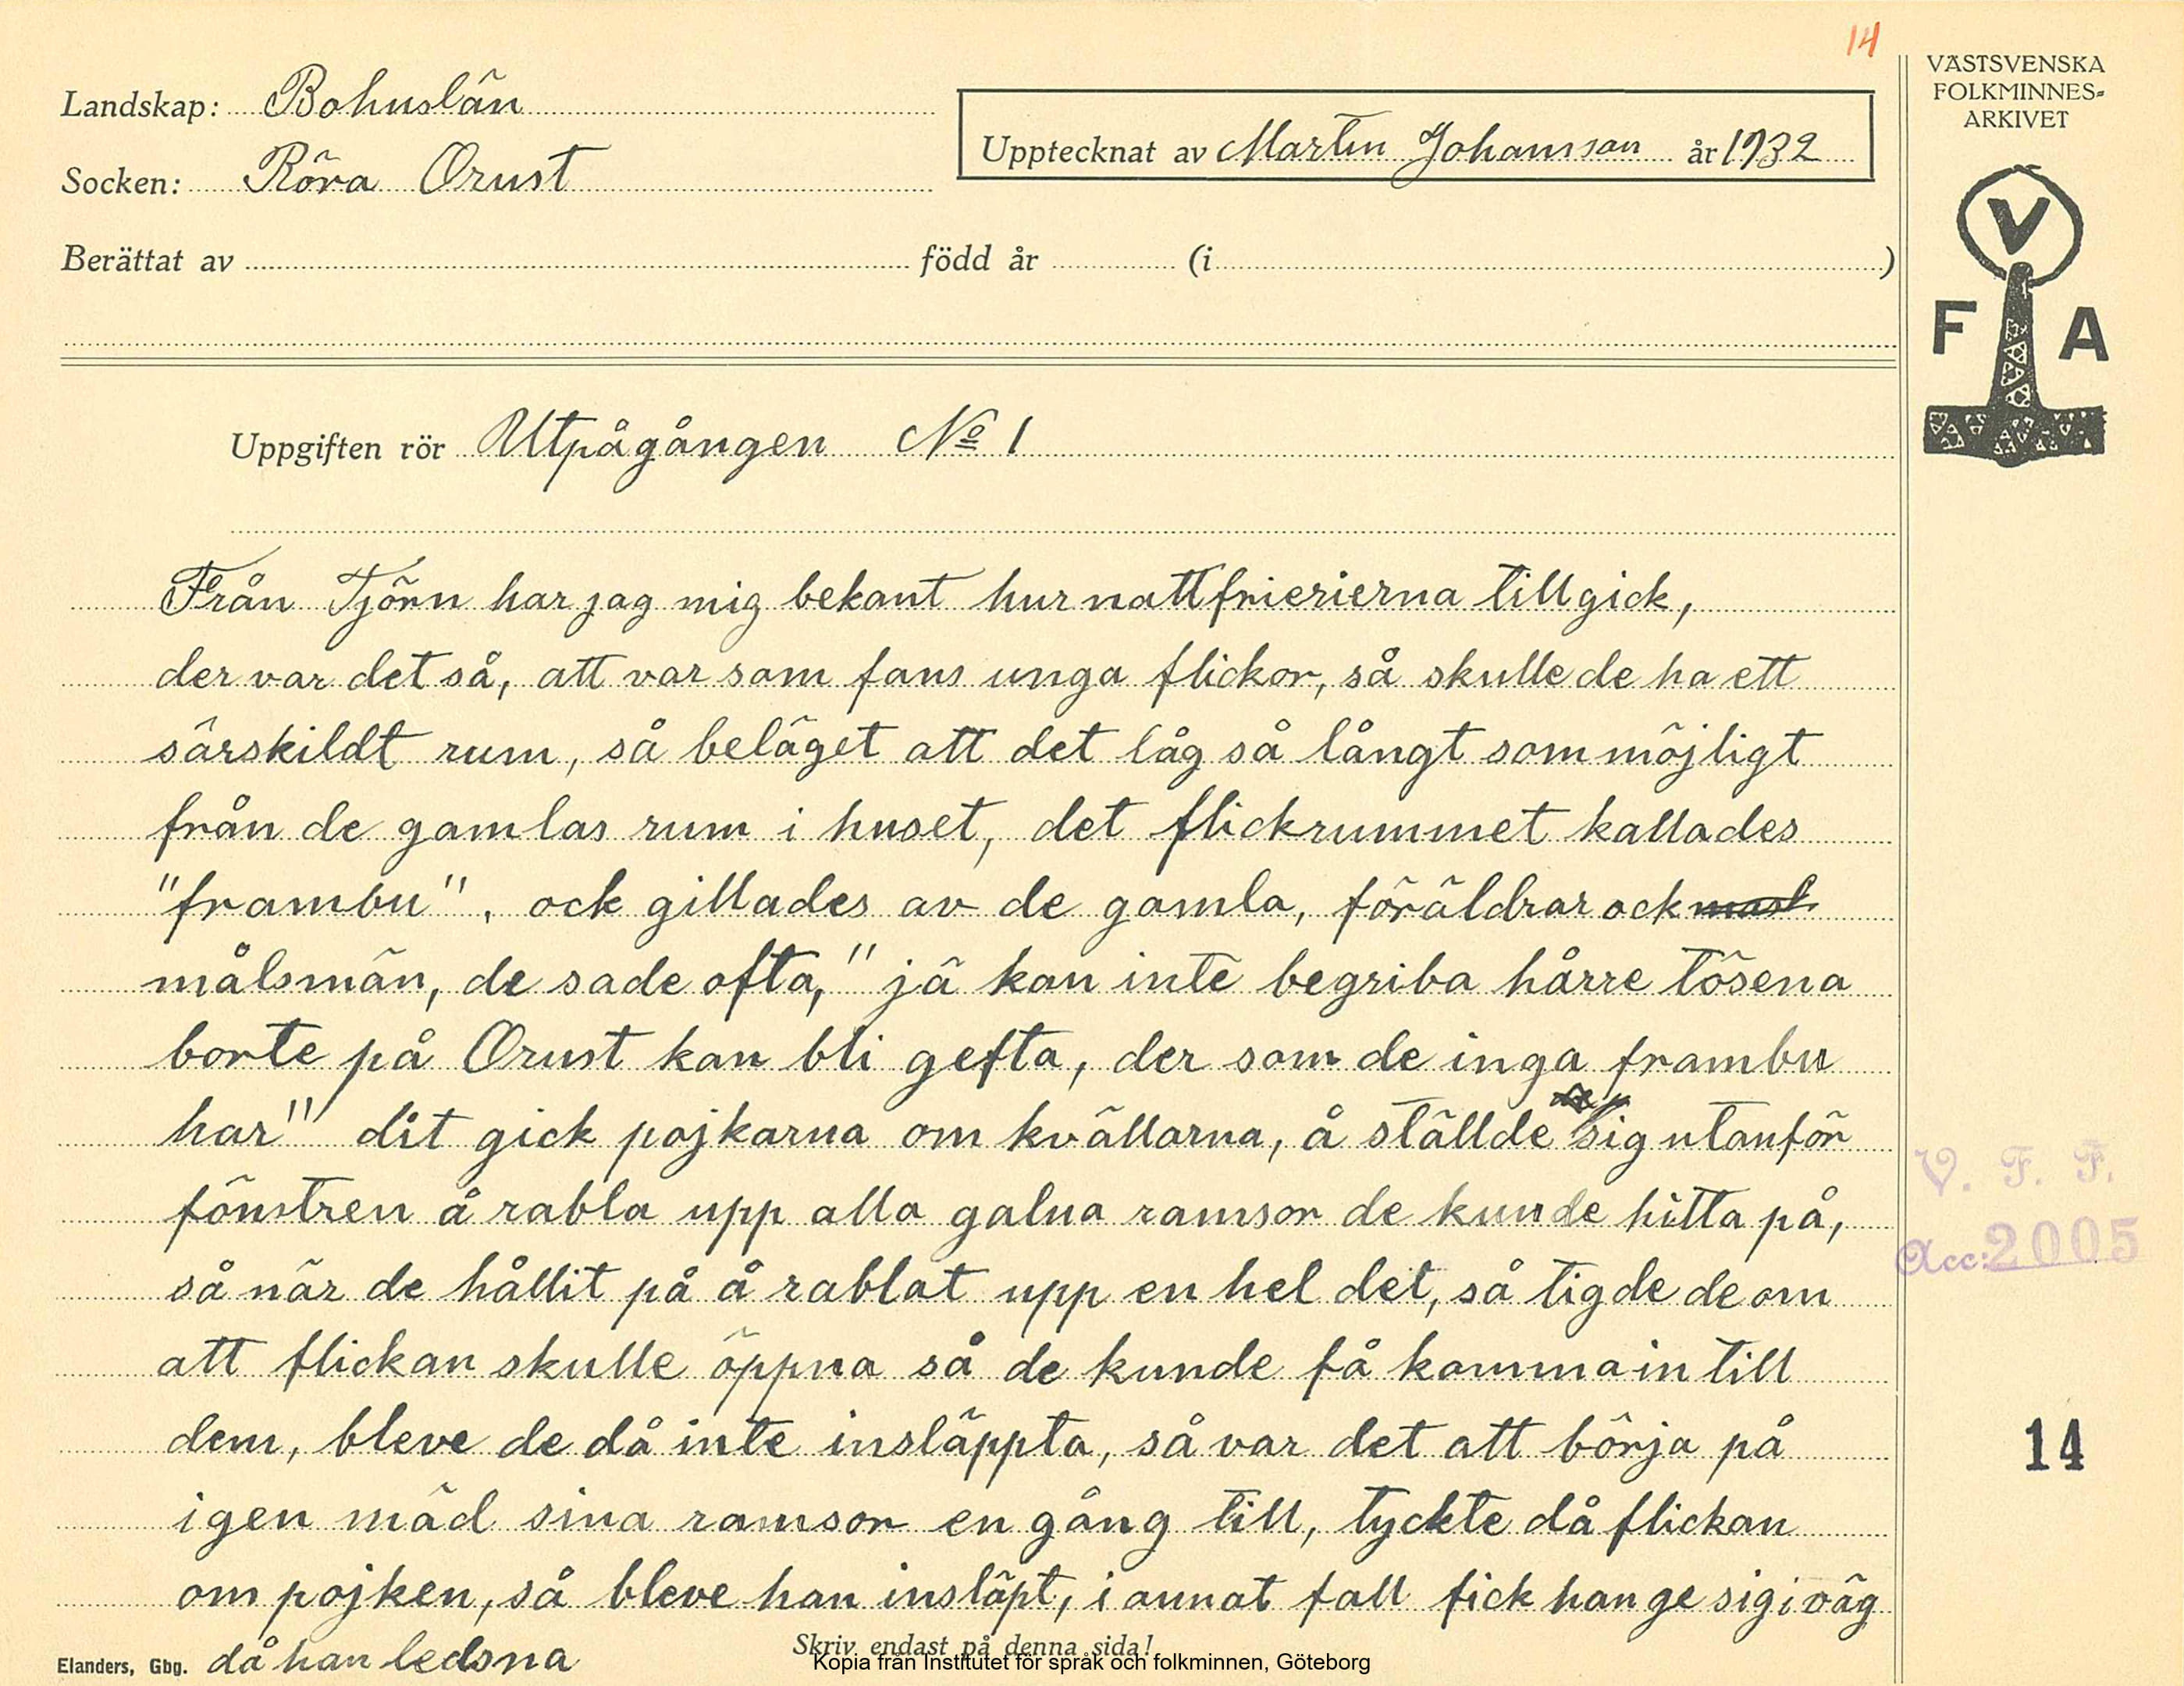 14
VÄSTSVENSKA
FOLKMINNES-
ARKIVET
Landskap: Bohuslän
Upptecknat av Martin Johansson år 1932
Socken: Röra Orust
Berättat av född år (i )
V
F A
Uppgiften rör Utpågången No 1
Från Tjörn har jag mig bekant hur nattfrierierna tillgick,
der var det så, att var som fans unga flickor, så skulle de ha ett
särskildt rum, så beläget att det låg så långt som möjligt
från de gamlas rum i huset, det flickrummet kallades
"frambu", ock gillades av de gamla, föräldrar ock
målsmän, de sade ofta, "jä kan inte begriba hårre tösena
borte på Orust kan bli gefta, der som de inga frambu
har" dit gick pojkarna om kvällarna, å ställde sig utanför
fönstren å rabla upp alla galna ramsor de kunde hitta på,
så när de hållit på å rablat upp en hel del, så tigde de om
att flickan skulle öppna så de kunde få komma in till
dem, bleve de då inte insläppta, så var det att börja på
igen mäd sina ramsor en gång till, tyckte då flickan
om pojken, så bleve han insläpt, i annat fall fick han ge sig i väg
då han ledsna
V. F. F.
Acc: 2005
14
Elanders, Gbg.
Skriv endast på denna sida!
Kopia från Institutet för språk och folkminnen, Göteborg